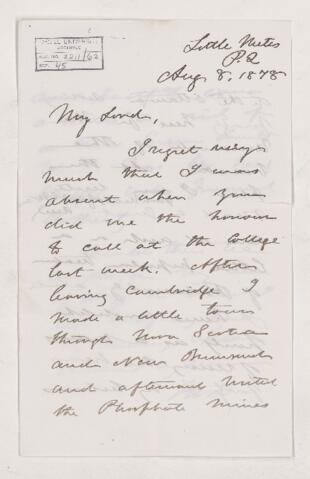 McGILL UNIVERSITY
ARCHIVES
ACC. NO. 2211/62
REF. 45
Little Metis
P.Q
Aug 8, 1878
My Lord,
I regret very
much that I was
absent when you
did me the honour
to call at the College
last week. After
leaving Cambridge I
made a little tour
through Nova Scotia
and New Brunswick
and afterward visited
the Phosphate mines